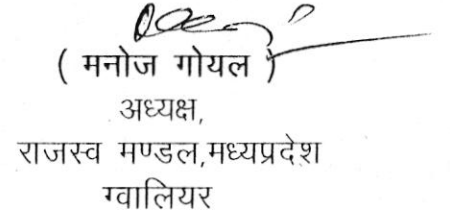 ( मनोज गोयल )
अध्यक्ष,
राजस्व मण्डल,मध्यप्रदेश
ग्वालियर